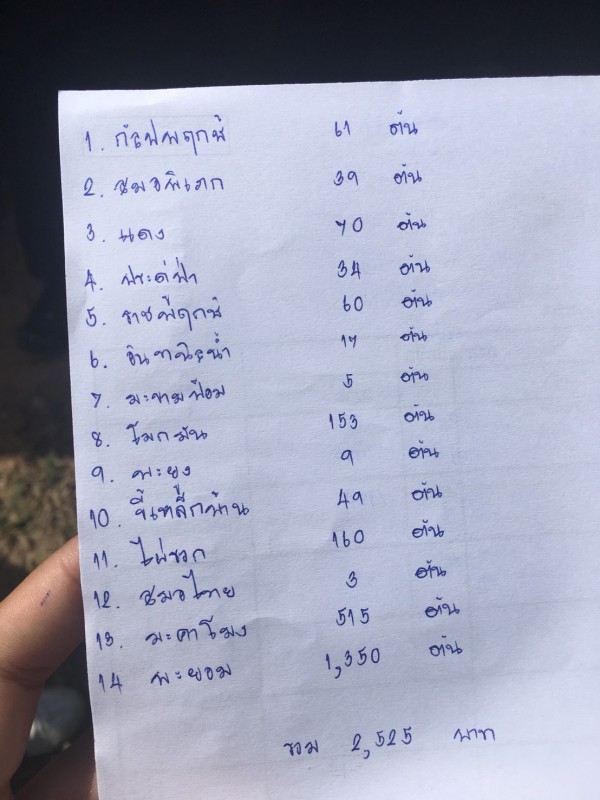 1. กัลปพฤกษ์ 61 ต้น
2. สมอพิเภก 39 ต้น
3. แดง 70 ต้น
4. ประดู่ป่า 34 ต้น
5. ราชพฤกษ์ 60 ต้น
6. อินทนิลน้ำ 17 ต้น
7. มะขามป้อม 5 ต้น
8. โมกมัน 153 ต้น
9. พะยูง 9 ต้น
10. ขี้เหล็กบ้าน 49 ต้น
11. ไผ่รวก 160 ต้น
12. สมอไทย 3 ต้น
13. มะค่าโมง 515 ต้น
14 พะยอม 1,350 ต้น
รวม 2,525 บาท